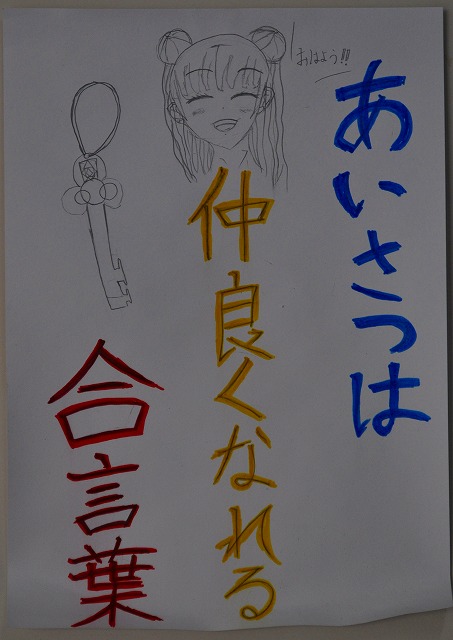 あいさつは
仲良くなれる
合言葉
おはよう!!